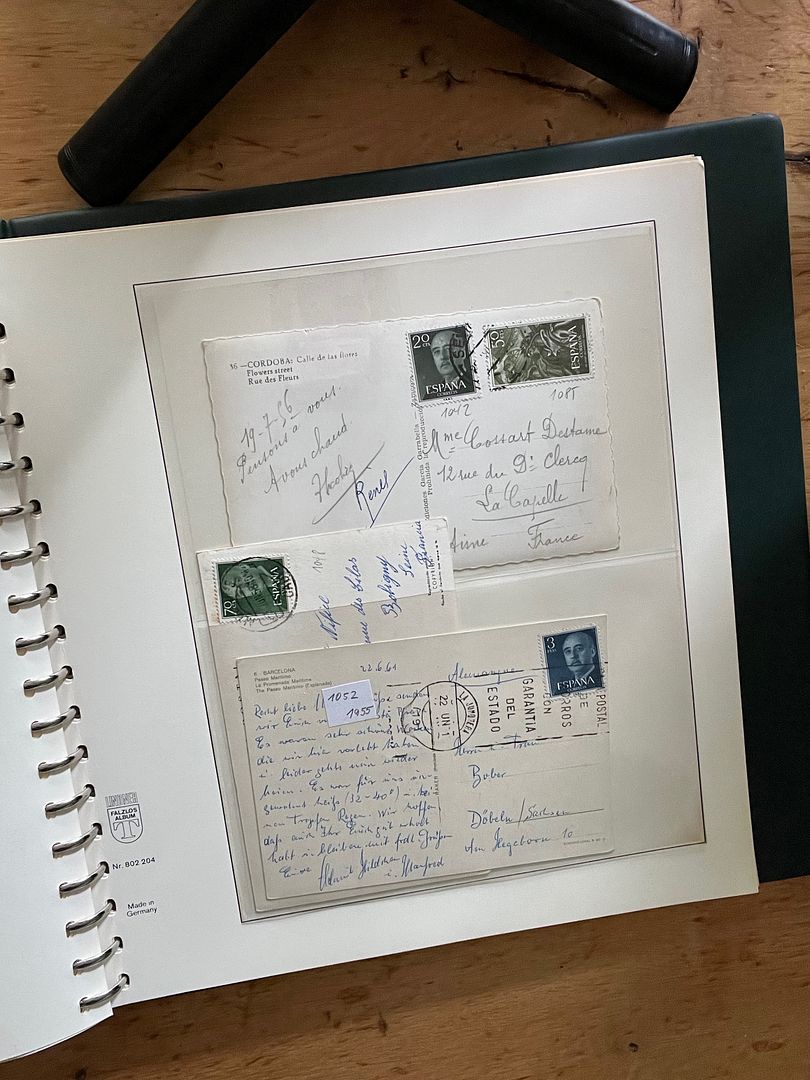 36 — CORDOBA: Calle de las flores
Flowers street
Rue des Fleurs
19-7-56
Pensons à vous.
Avons chaud.
Renés
20 CTS
ESPAÑA
CORREOS
50
ESPAÑA
1042
1085
Mme Cossart Destame
12 rue du Dr Clercq
La Capelle
Aisne France
Ediciones García Garrabella
Prohibida la reproducción
70
ESPAÑA
1048
Bobigny
Seine
Francia
6 BARCELONA
Paseo Marítimo
La Promenade Maritime
The Paseo Marítimo (Esplanade)
22.6.61
Allemagne
3
ESPAÑA
1052
1955
22 JUN 61
GARANTIA
DEL
ESTADO
POSTAL
Recht liebe
wir Euch
Es waren sehr schöne
die wir hier verlebt haben
u. leider gehts nun wieder
heim. Es war für uns un-
gewohnt heiß (32-40°) u. kei-
nen Tropfen Regen. Wir hoffen
daß auch Ihr Euch gut erholt
habt u. bleiben mit frdl. Grüßen
Eure
u. Manfred
Herrn u. Frau
Bober
Döbeln/Sachsen
Am Ziegeborn 10
LINDNER
FALZLOS
ALBUM
T
Nr. 802 204
Made in
Germany